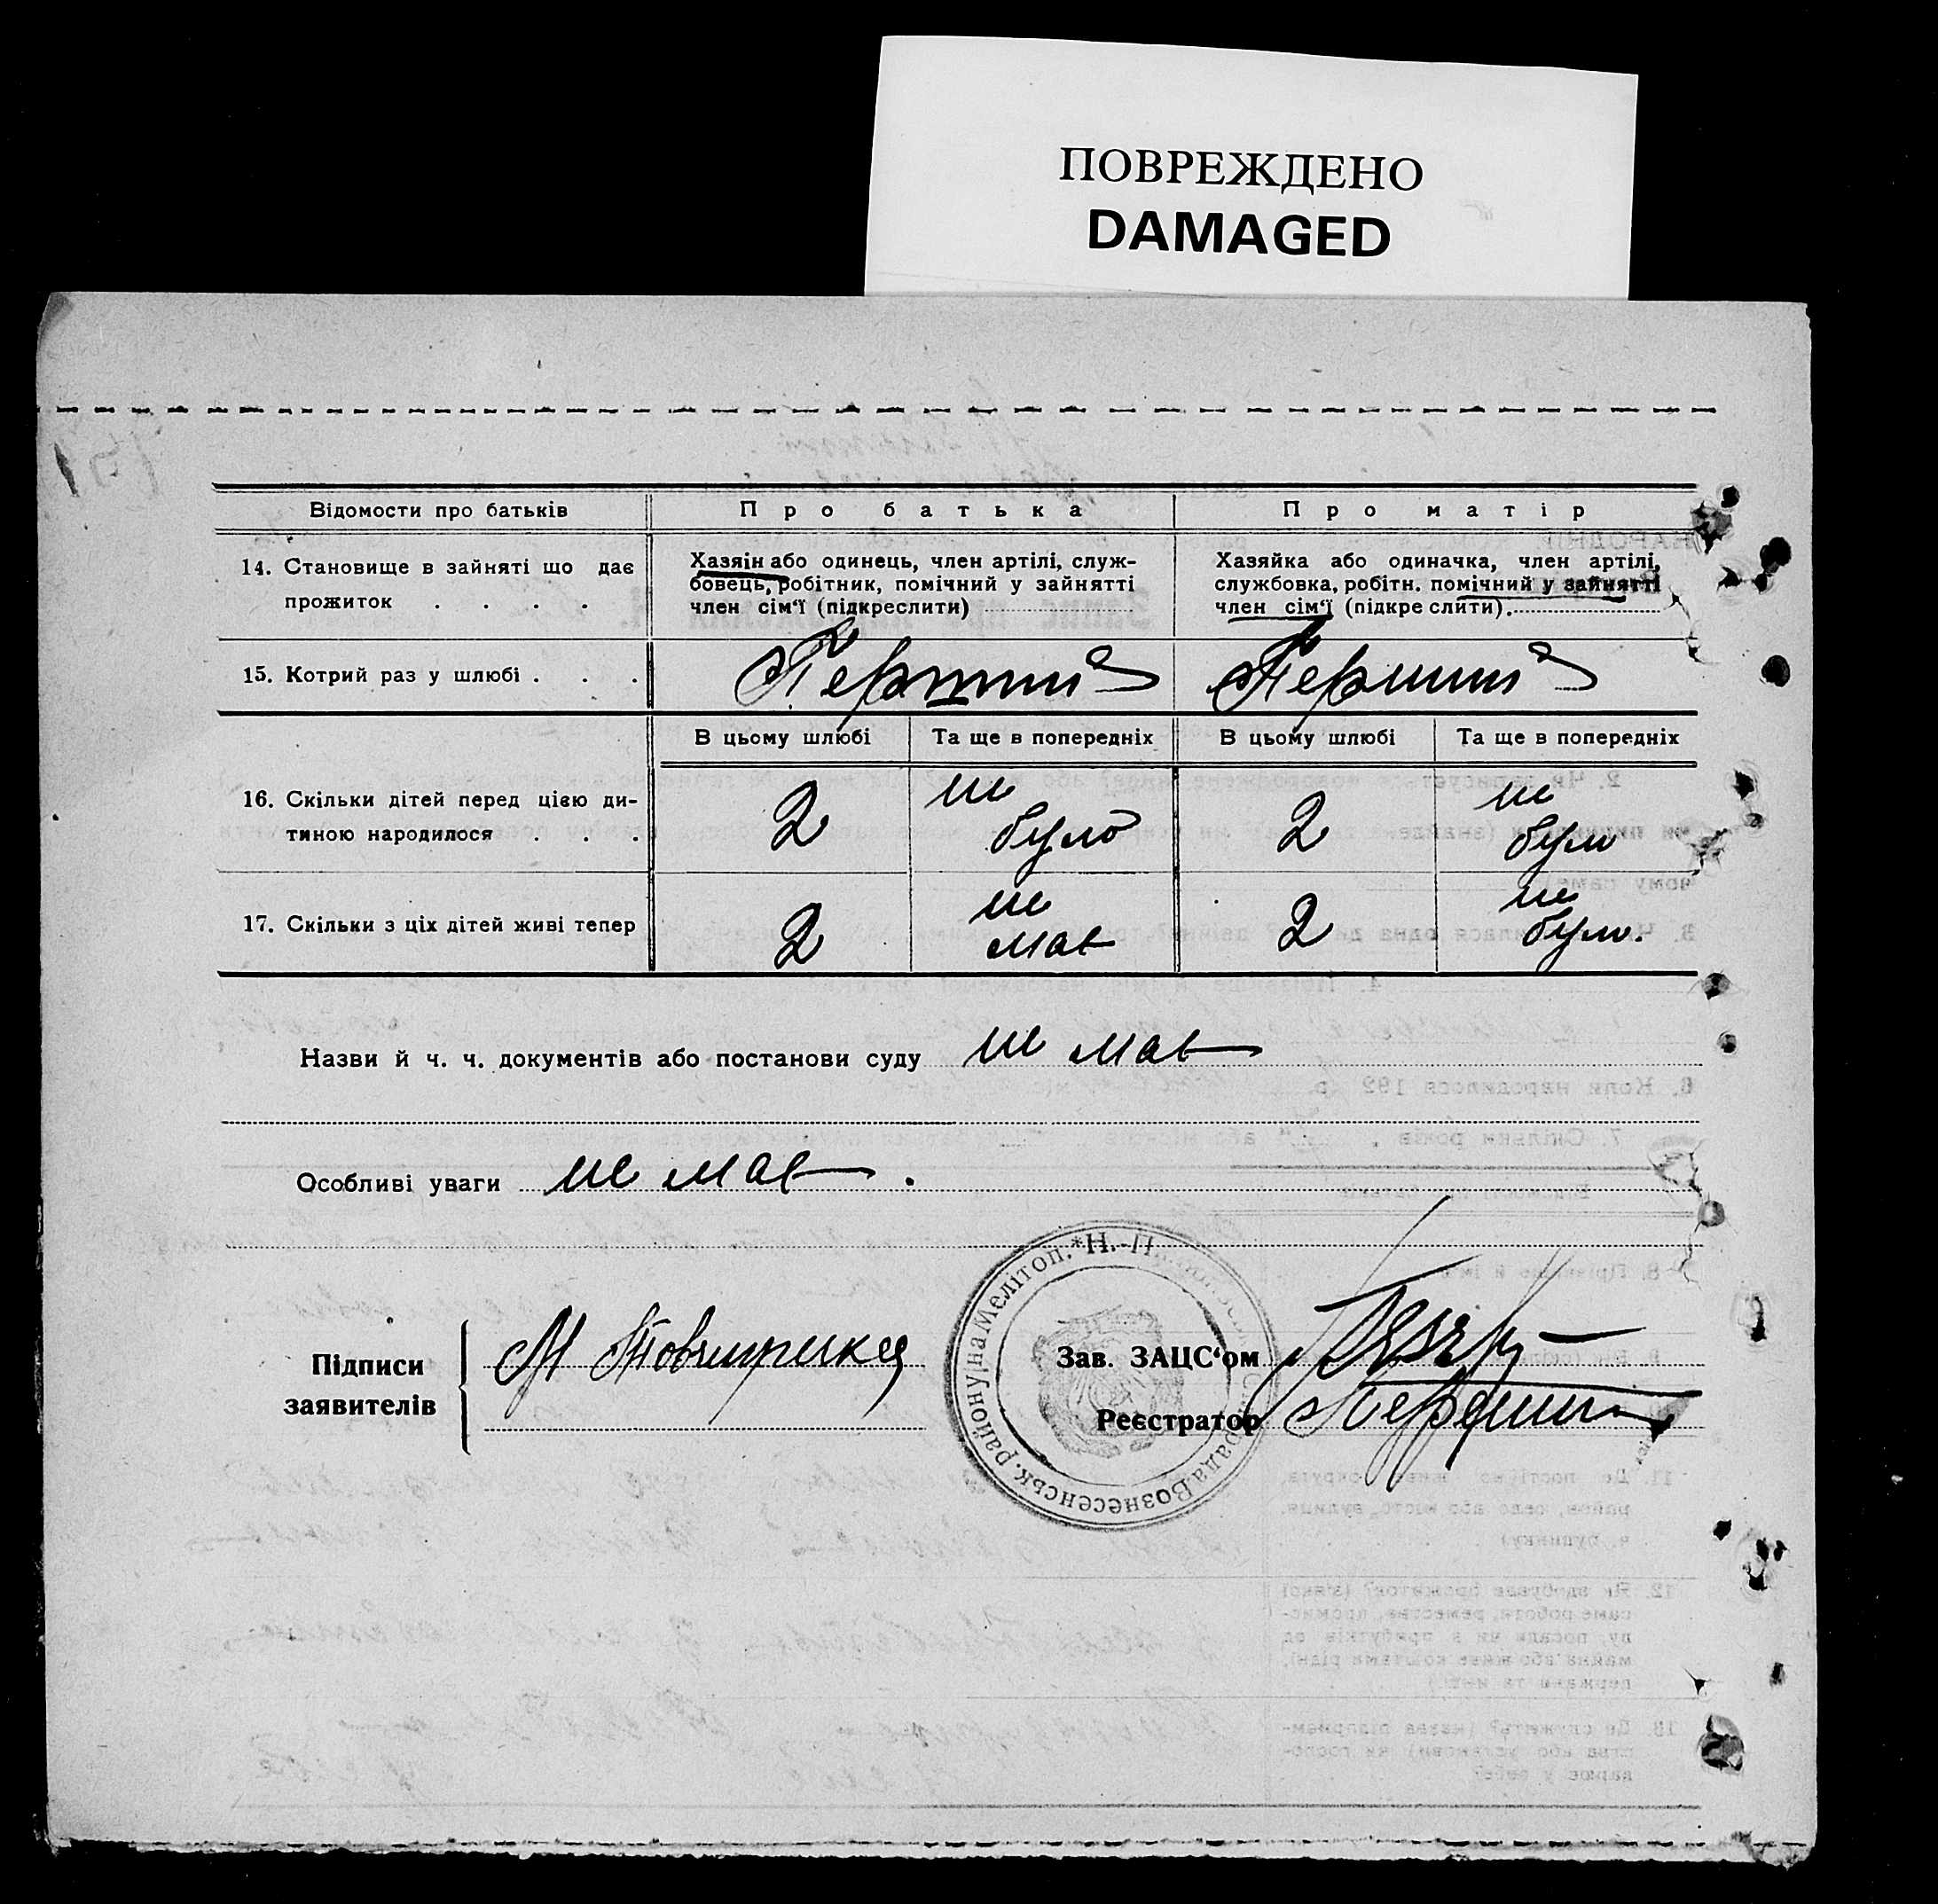 ПОВРЕЖДЕНО
DAMAGED
Відомости про батьків
Про батька
Про матір
14. Становище в зайняті що дає
прожиток . . . .
Хазяін або одинець, член артілі, служ-
бовець, робітник, помічний у зайнятті
член сім'ї (підкреслити)
Хазяйка або одиначка, член артілі,
службовка, робітн. помічний у зайнятті
член сім'ї (підкреслити).
15. Котрий раз у шлюбі . . .
Перший
Перший
В цьому шлюбі
Та ще в попередніх
В цьому шлюбі
Та ще в попередніх
16. Скільки дітей перед цією ди-
тиною народилося . . .
2
не
було
2
не
було
17. Скільки з ціх дітей живі тепер
2
не
має
2
не
було.
Назви й ч. ч. документів або постанови суду не має
Особливі уваги не має.
Підписи
заявителів
М
Зав. ЗАЦС'ом
Реєстратор
рада Вознесенськ. району на Мелітоп. * Н.-